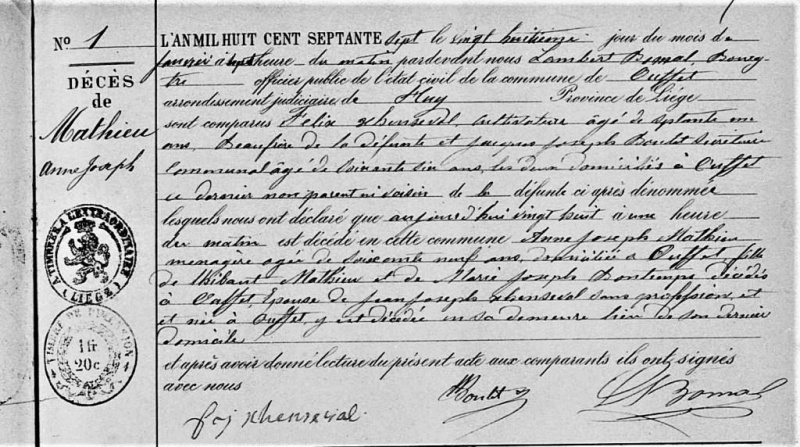 N° 1
DÉCÈS
de
Mathieu
Anne Joseph
A TIMBRER A L'EXTRAORDINAIRE
(LIÉGE)
TIMBRE DE DIMENSION
1 fr
20 c
L'AN MIL HUIT CENT SEPTANTE sept le vingt huitième jour du mois de
janvier à heure du matin pardevant nous Lambert Bomal, Bourg-
tre officier public de l'état civil de la commune de Ouffet
arrondissement judiciaire de Huy Province de Liége
sont comparus Felix xhenseval cultivateur âgé de septante un
ans, Beaufrère de la défunte et jacques joseph Boulet Secrétaire
Communal âgé de soixante six ans, les deux domiciliés à Ouffet
ce dernier non parent ni voisin de la défunte ci après dénommée
lesquels nous ont déclaré que aujourd'hui vingt huit à une heure
du matin est décédé en cette commune Anne Joseph Mathieu
ménagère agée de soixante neuf ans, domiciliée à Ouffet, fille
de Thibaut Mathieu et de Marie Joseph Bontemps décédés
à Ouffet, Epouse de jean joseph xhenseval sans profession, et
et née à Ouffet, y est décédée en sa demeure lieu de son dernier
domicile
et après avoir donné lecture du présent acte aux comparants ils ont signés
avec nous
f xhenseval
Boulet
L Bomal